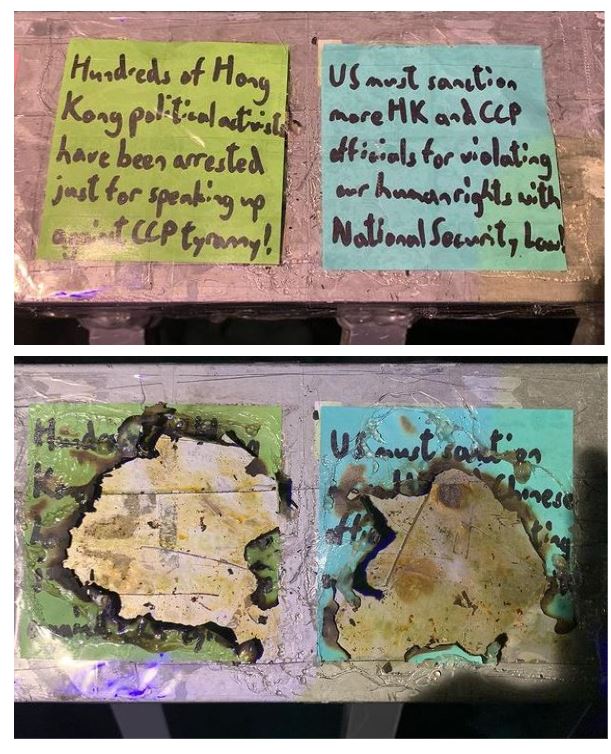 Hundreds of Hong
Kong political activists
have been arrested
just for speaking up
against CCP tyranny!
US must sanction
more HK and CCP
officials for violating
our human rights with
National Security Law!
US must sanction
Chinese